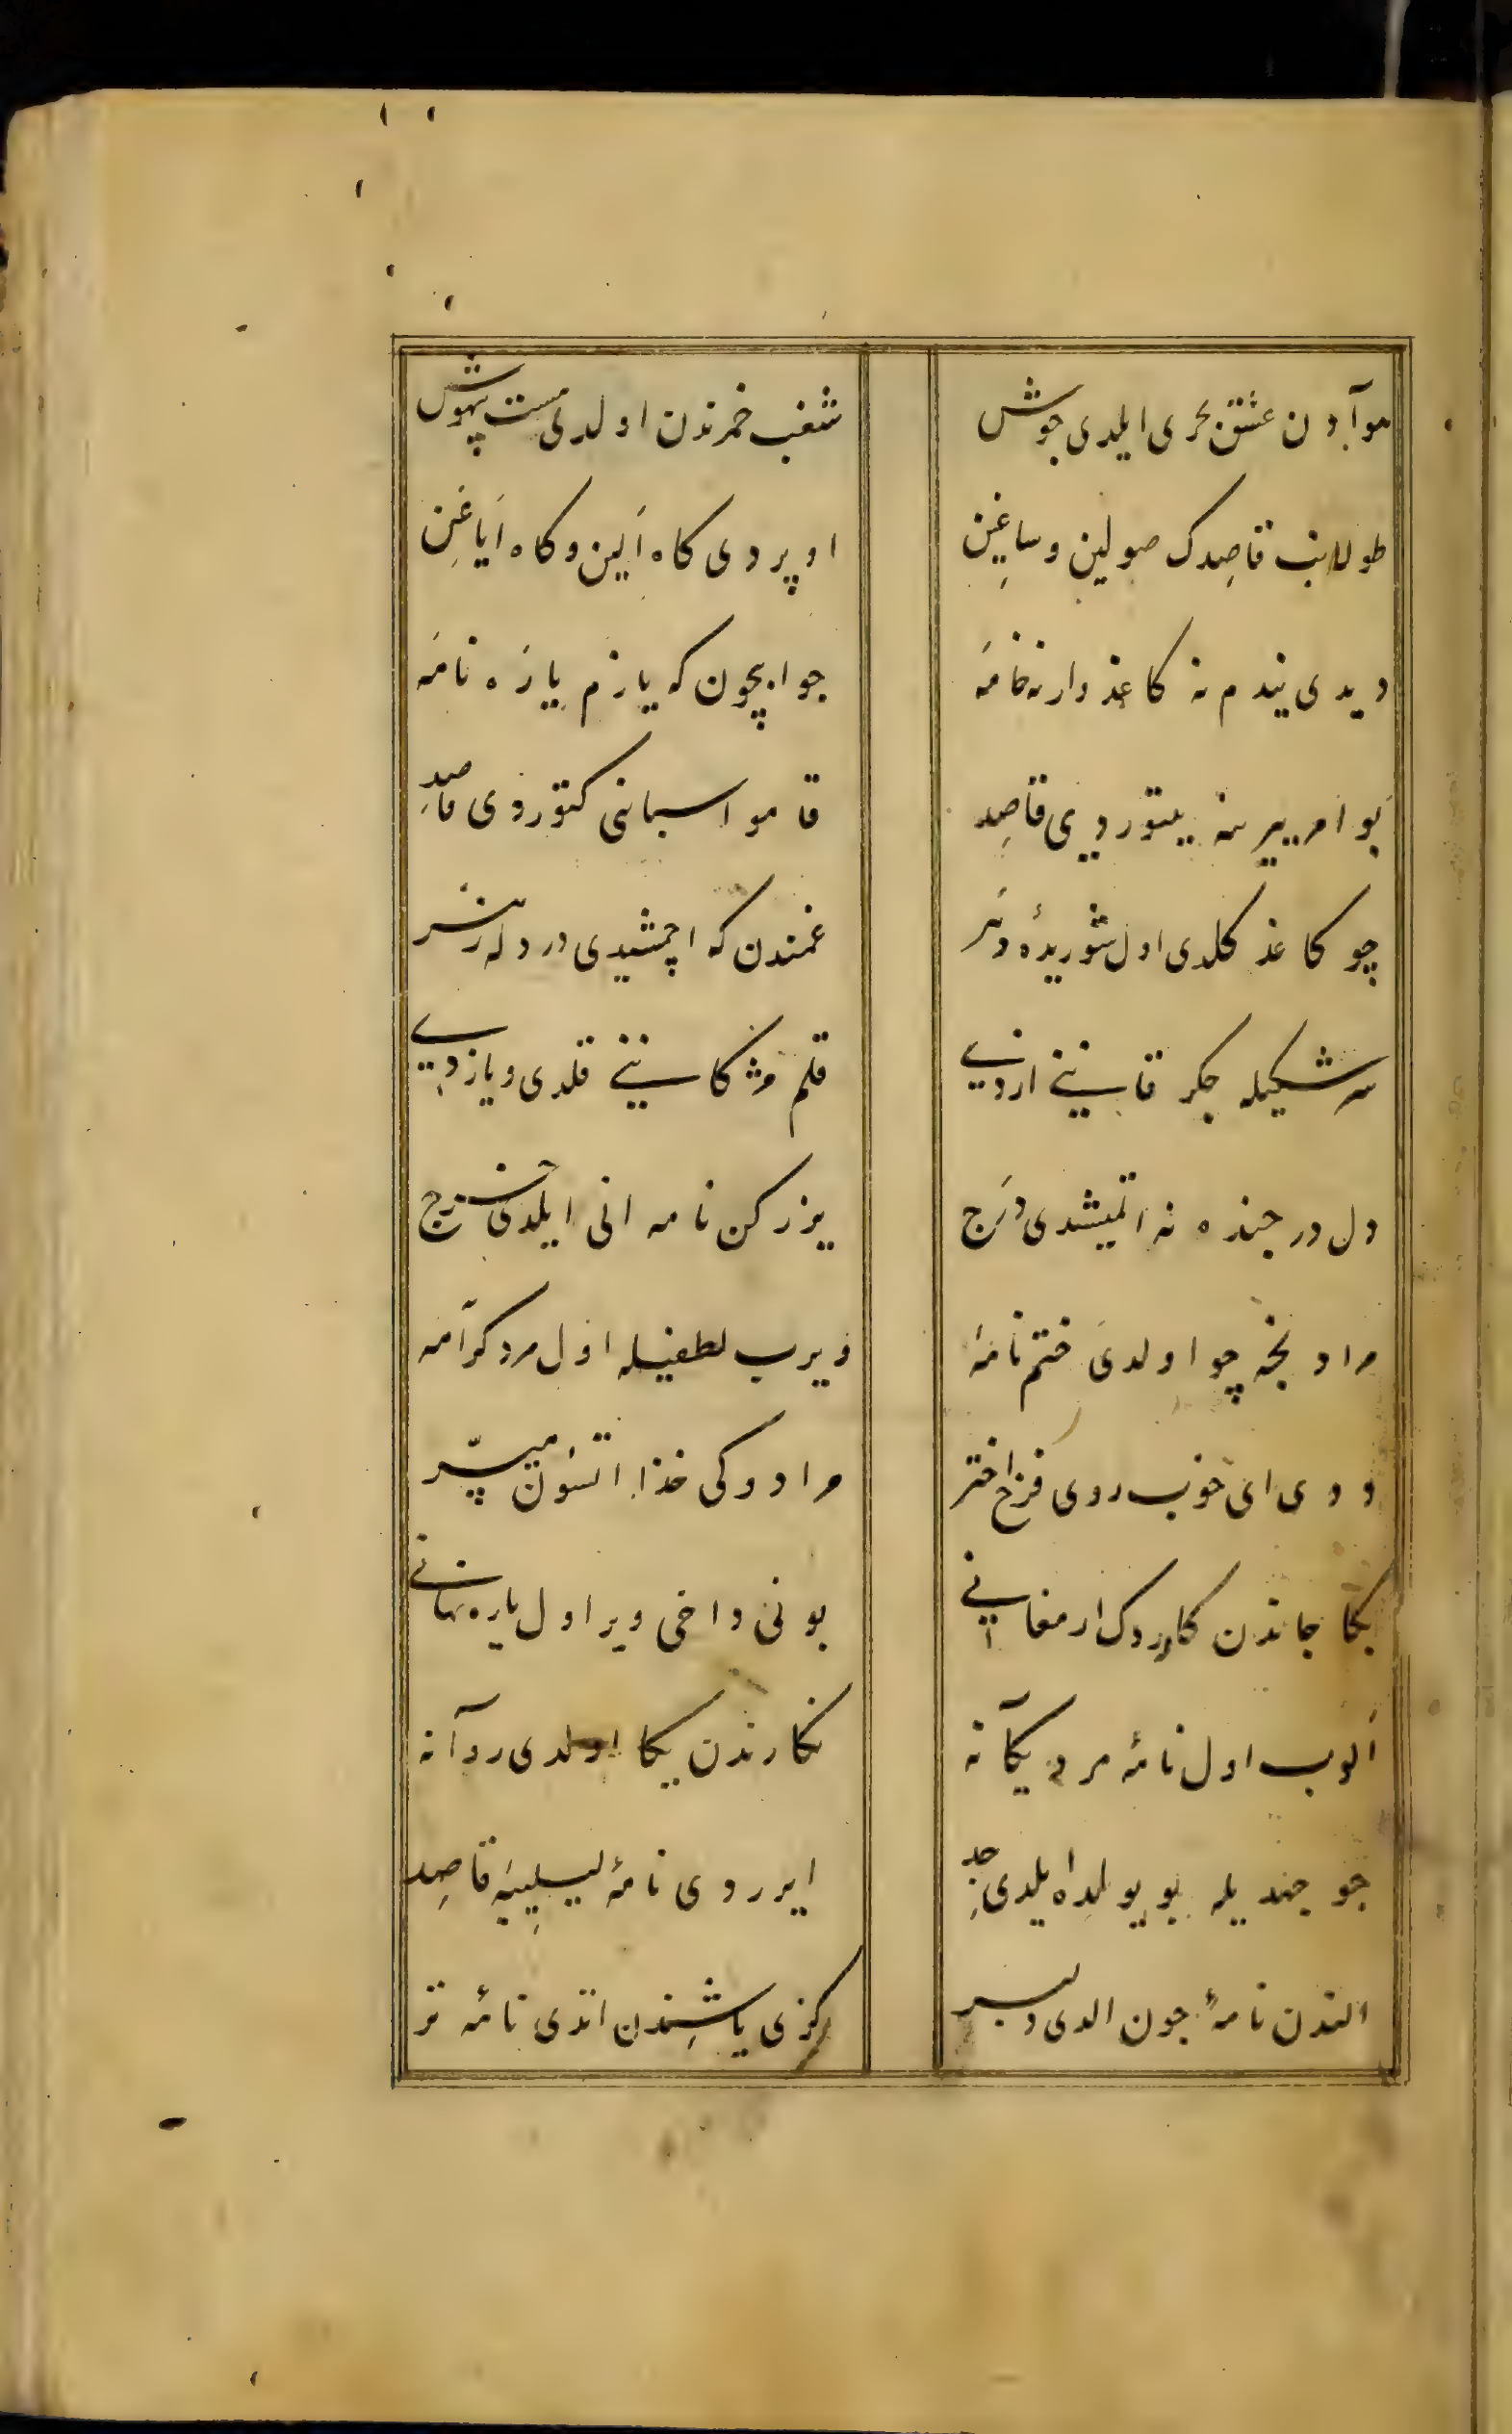 هوآدن عشق بحری ایلدی جوش شغب خمرندن اولدی مست بیهوش
طولانب قاصدک صولین و ساغین اوپردی کاه الین و کاه ایاغین
دیدی نیدم نه کاغذ وار نه خامه جوابچون که یازم یازه نامه
بو امر یرینه یتوردی قاصد قامو اسبابنی کتوردی قاصد
چو کاغذ کلدی اول شوریده غمندن که اچمشیدی در دله
سرشکیله جکر قانینی ازدی قلم مژکانینی قلدی و یازدی
دل درجنده نه اتمیشدی درج یزرکن نامه انی ایلدی خرج
مرادنجه چو اولدی ختم نامه ویرب لطفیله اول مرد کرامه
ددی ای خوب روی فرخ اختر مرادوکی خذا اتسون میسّر
بکا جاندن کلوردک ارمغانی بونی داخی ویر اول یاره نهانی
الوب اول نامهٔ مرد یکانه نکارندن یکا اولدی روآنه
جو جهدیله بو یولده ایلدی جد ایرردی نامهٔ لیلییه قاصد
الندن نامهٔ جون الدی دلبر کزی یاشندن اتدی نامهٔ تر